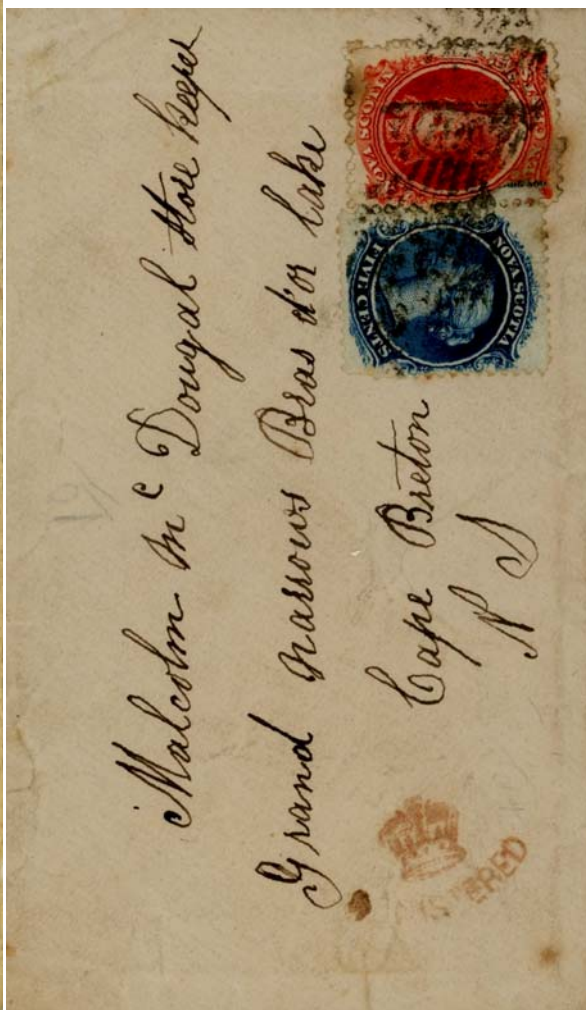 Malcolm Mc Dougal store keeper
Grand narrows Bras d'or lake
Cape Breton
N S
NOVA SCOTIA
FIVE CENTS
NOVA SCOTIA
CENTS